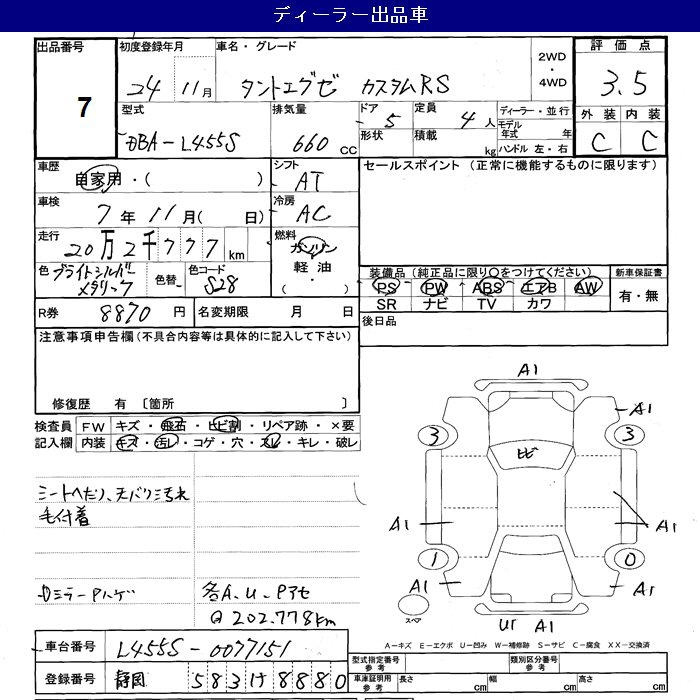 ディーラー出品車
出品番号 初度登録年月 車名・グレード 2WD・4WD 評価点
7 24 11月 タントエグゼ カスタムRS 3.5
型式 排気量 ドア 定員 ディーラー・並行 外装 内装
DBA-L455S 660 CC 5 4人 モデル年式 年 C C
形状 積載 kg ハンドル 左・右
車歴 自家用・( ) シフト AT セールスポイント (正常に機能するものに限ります)
車検 7年 11月( 日) 冷房 AC
走行 20万2千777 km 燃料 ガソリン 軽油・( )
色 ブライトシルバーメタリック 色替 色コード S28
装備品 (純正品に限り○をつけてください) 新車保証書
PS PW ABS エアB AW 有・無
SR ナビ TV カワ
R券 8870円 名変期限 月 日 後日品
注意事項申告欄 (不具合内容等は具体的に記入して下さい)
修復歴 有 〔箇所 〕
検査員記入欄 FW キズ・飛石・ヒビ割・リペア跡・×要
内装 キズ・汚レ・コゲ・穴・スレ・キレ・破レ
シートヘたり、天バリ汚れ
毛付着
ドミラーPハゲ
各A、U、Pアセ
Q 202.778km
A1
A1
3 3
ヒビ
A1 A1
1 0
A1 A1
スペア
UI A1
A-キズ E-エクボ U-凹み W-補修跡 S-サビ C-腐食 XX-交換済
車台番号 L455S-0077151
型式指定番号 参考 類別区分番号 参考
登録番号 静岡 583 け 8880
車庫証明用 参考 長さ cm 幅 cm 高さ cm